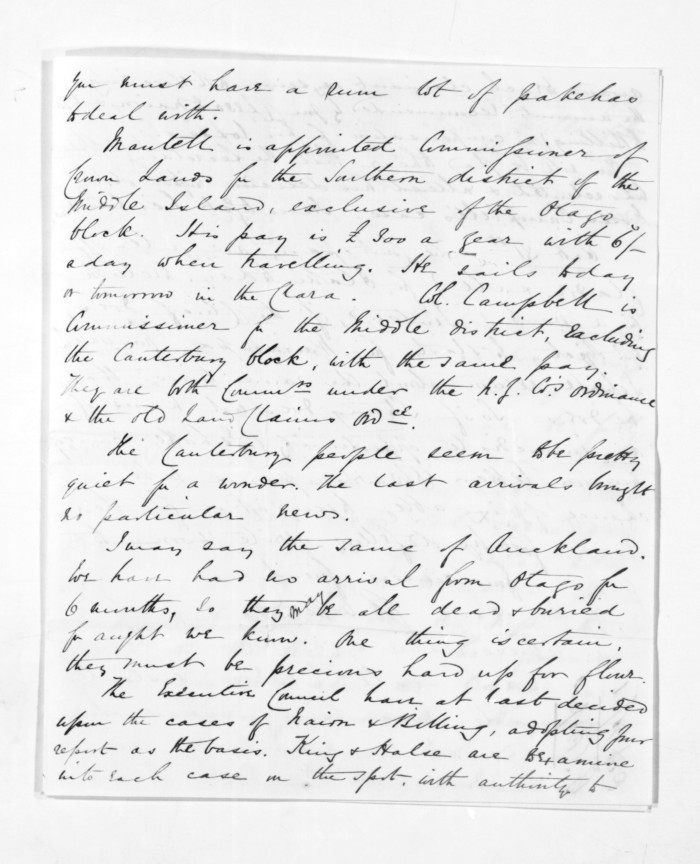 you must have a rum lot of pakehas
to deal with.
Mantell is appointed Commissioner of
Crown Lands for the Southern district of the
Middle Island, exclusive of the Otago
block. His pay is £300 a year with 6/-
a day when travelling. He sails today
or tomorrow in the Clara. Col. Campbell is
Commissioner for the Middle district, excluding
the Canterbury block, with the same pay.
They are both Commrs under the N.Z. Co's Ordinance
& the old Land Claims Ordce.
The Canterbury people seem to be pretty
quiet for a wonder. The last arrivals brought
no particular news.
I may say the same of Auckland.
We have had no arrival from Otago for
6 months, so they may be all dead & buried
for aught we know. One thing is certain,
they must be precious hard up for flour.
The Executive Council have at last decided
upon the cases of Nairn & Billing, adopting your
report as the basis. King & Halse are to examine
into each case on the spot, with authority to